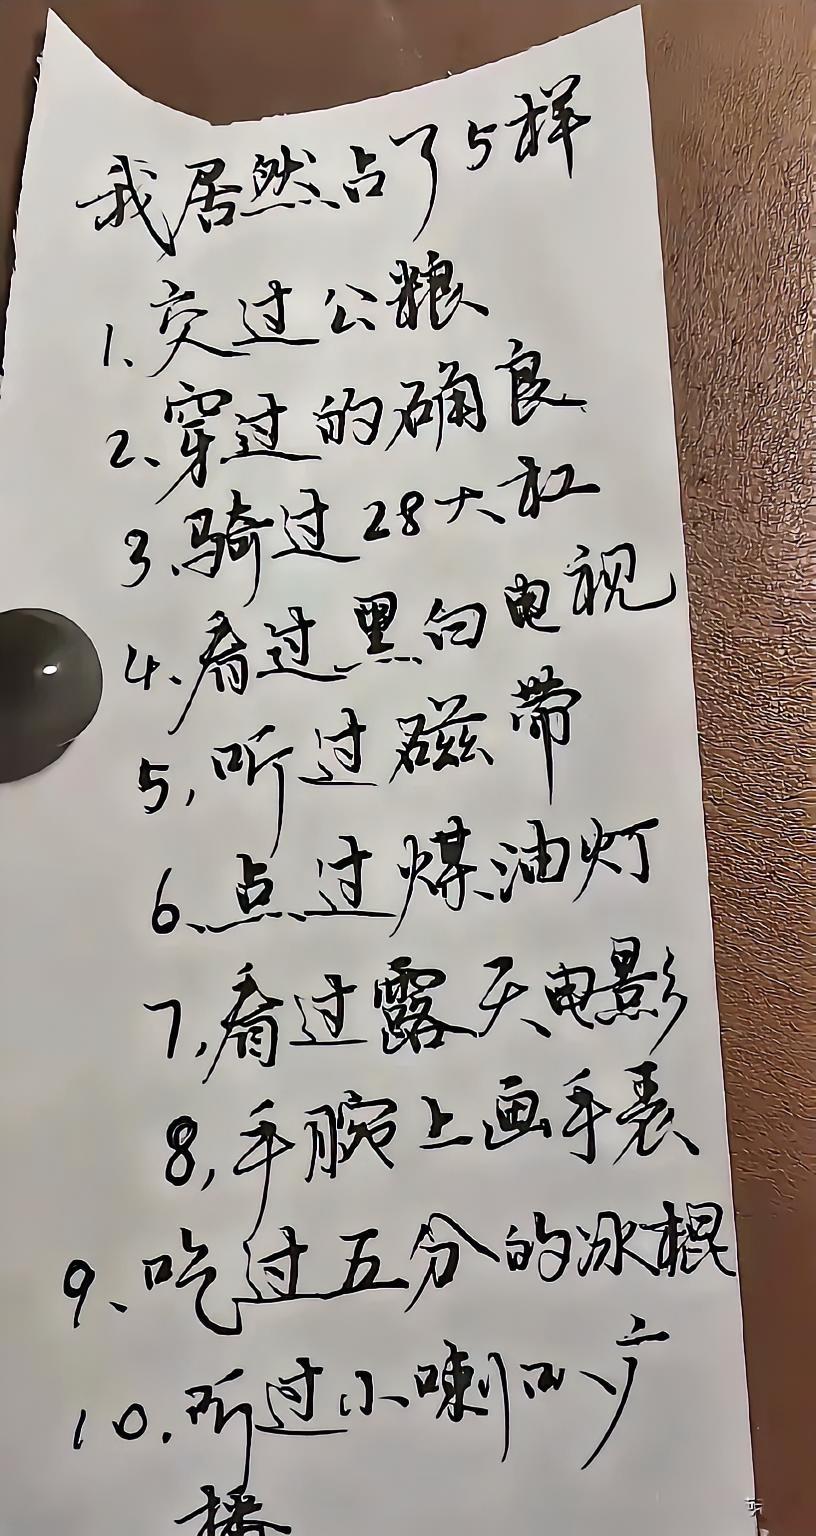 我居然占了5样
1、交过公粮
2、穿过的确良
3、骑过28大杠
4、看过黑白电视
5，听过磁带
6、点过煤油灯
7，看过露天电影
8，手腕上画手表
9、吃过五分的冰棍
10．听过小喇叭广
播